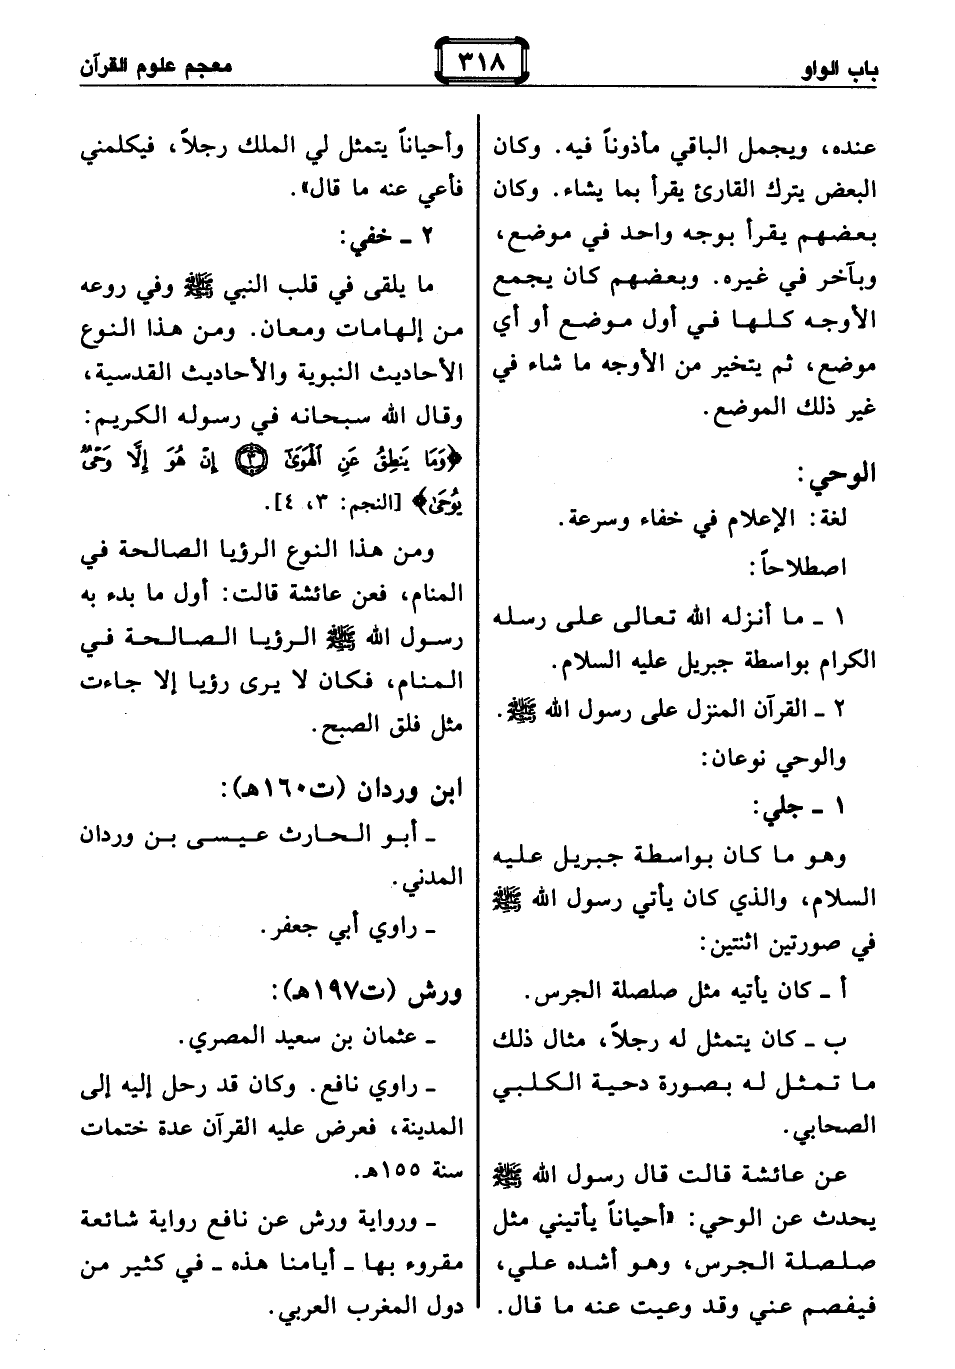 باب الواو
٣١٨
معجم علوم القرآن
عنده، ويجمل الباقي مأذوناً فيه. وكان
البعض يترك القارئ يقرأ بما يشاء. وكان
بعضهم يقرأ بوجه واحد في موضع،
وبآخر في غيره. وبعضهم كان يجمع
الأوجه كلها في أول موضع أو أي
موضع، ثم يتخير من الأوجه ما شاء في
غير ذلك الموضع.
الوحي:
لغة: الإعلام في خفاء وسرعة.
اصطلاحاً:
١ ـ ما أنزله الله تعالى على رسله
الكرام بواسطة جبريل عليه السلام.
٢ ـ القرآن المنزل على رسول الله ﷺ.
والوحي نوعان:
١ ـ جلي:
وهو ما كان بواسطة جبريل عليه
السلام، والذي كان يأتي رسول الله ﷺ
في صورتين اثنتين:
أ ـ كان يأتيه مثل صلصلة الجرس.
ب ـ كان يتمثل له رجلاً، مثال ذلك
ما تمثل له بصورة دحية الكلبي
الصحابي.
عن عائشة قالت قال رسول الله ﷺ
يحدث عن الوحي: «أحياناً يأتيني مثل
صلصلة الجرس، وهو أشده علي،
فيفصم عني وقد وعيت عنه ما قال.
وأحياناً يتمثل لي الملك رجلاً، فيكلمني
فأعي عنه ما قال».
٢ ـ خفي:
ما يلقى في قلب النبي ﷺ وفي روعه
من إلهامات ومعان. ومن هذا النوع
الأحاديث النبوية والأحاديث القدسية،
وقال الله سبحانه في رسوله الكريم:
﴿وَمَا يَنطِقُ عَنِ ٱلْهَوَىٰٓ ۝٣ إِنْ هُوَ إِلَّا وَحْىٌ
يُوحَىٰ﴾ [النجم: ٣، ٤].
ومن هذا النوع الرؤيا الصالحة في
المنام، فعن عائشة قالت: أول ما بدء به
رسول الله ﷺ الرؤيا الصالحة في
المنام، فكان لا يرى رؤيا إلا جاءت
مثل فلق الصبح.
ابن وردان (ت١٦٠هـ):
ـ أبو الحارث عيسى بن وردان
المدني.
ـ راوي أبي جعفر.
ورش (ت١٩٧هـ):
ـ عثمان بن سعيد المصري.
ـ راوي نافع. وكان قد رحل إليه إلى
المدينة، فعرض عليه القرآن عدة ختمات
سنة ١٥٥هـ.
ـ ورواية ورش عن نافع رواية شائعة
مقروء بها ـ أيامنا هذه ـ في كثير من
دول المغرب العربي.